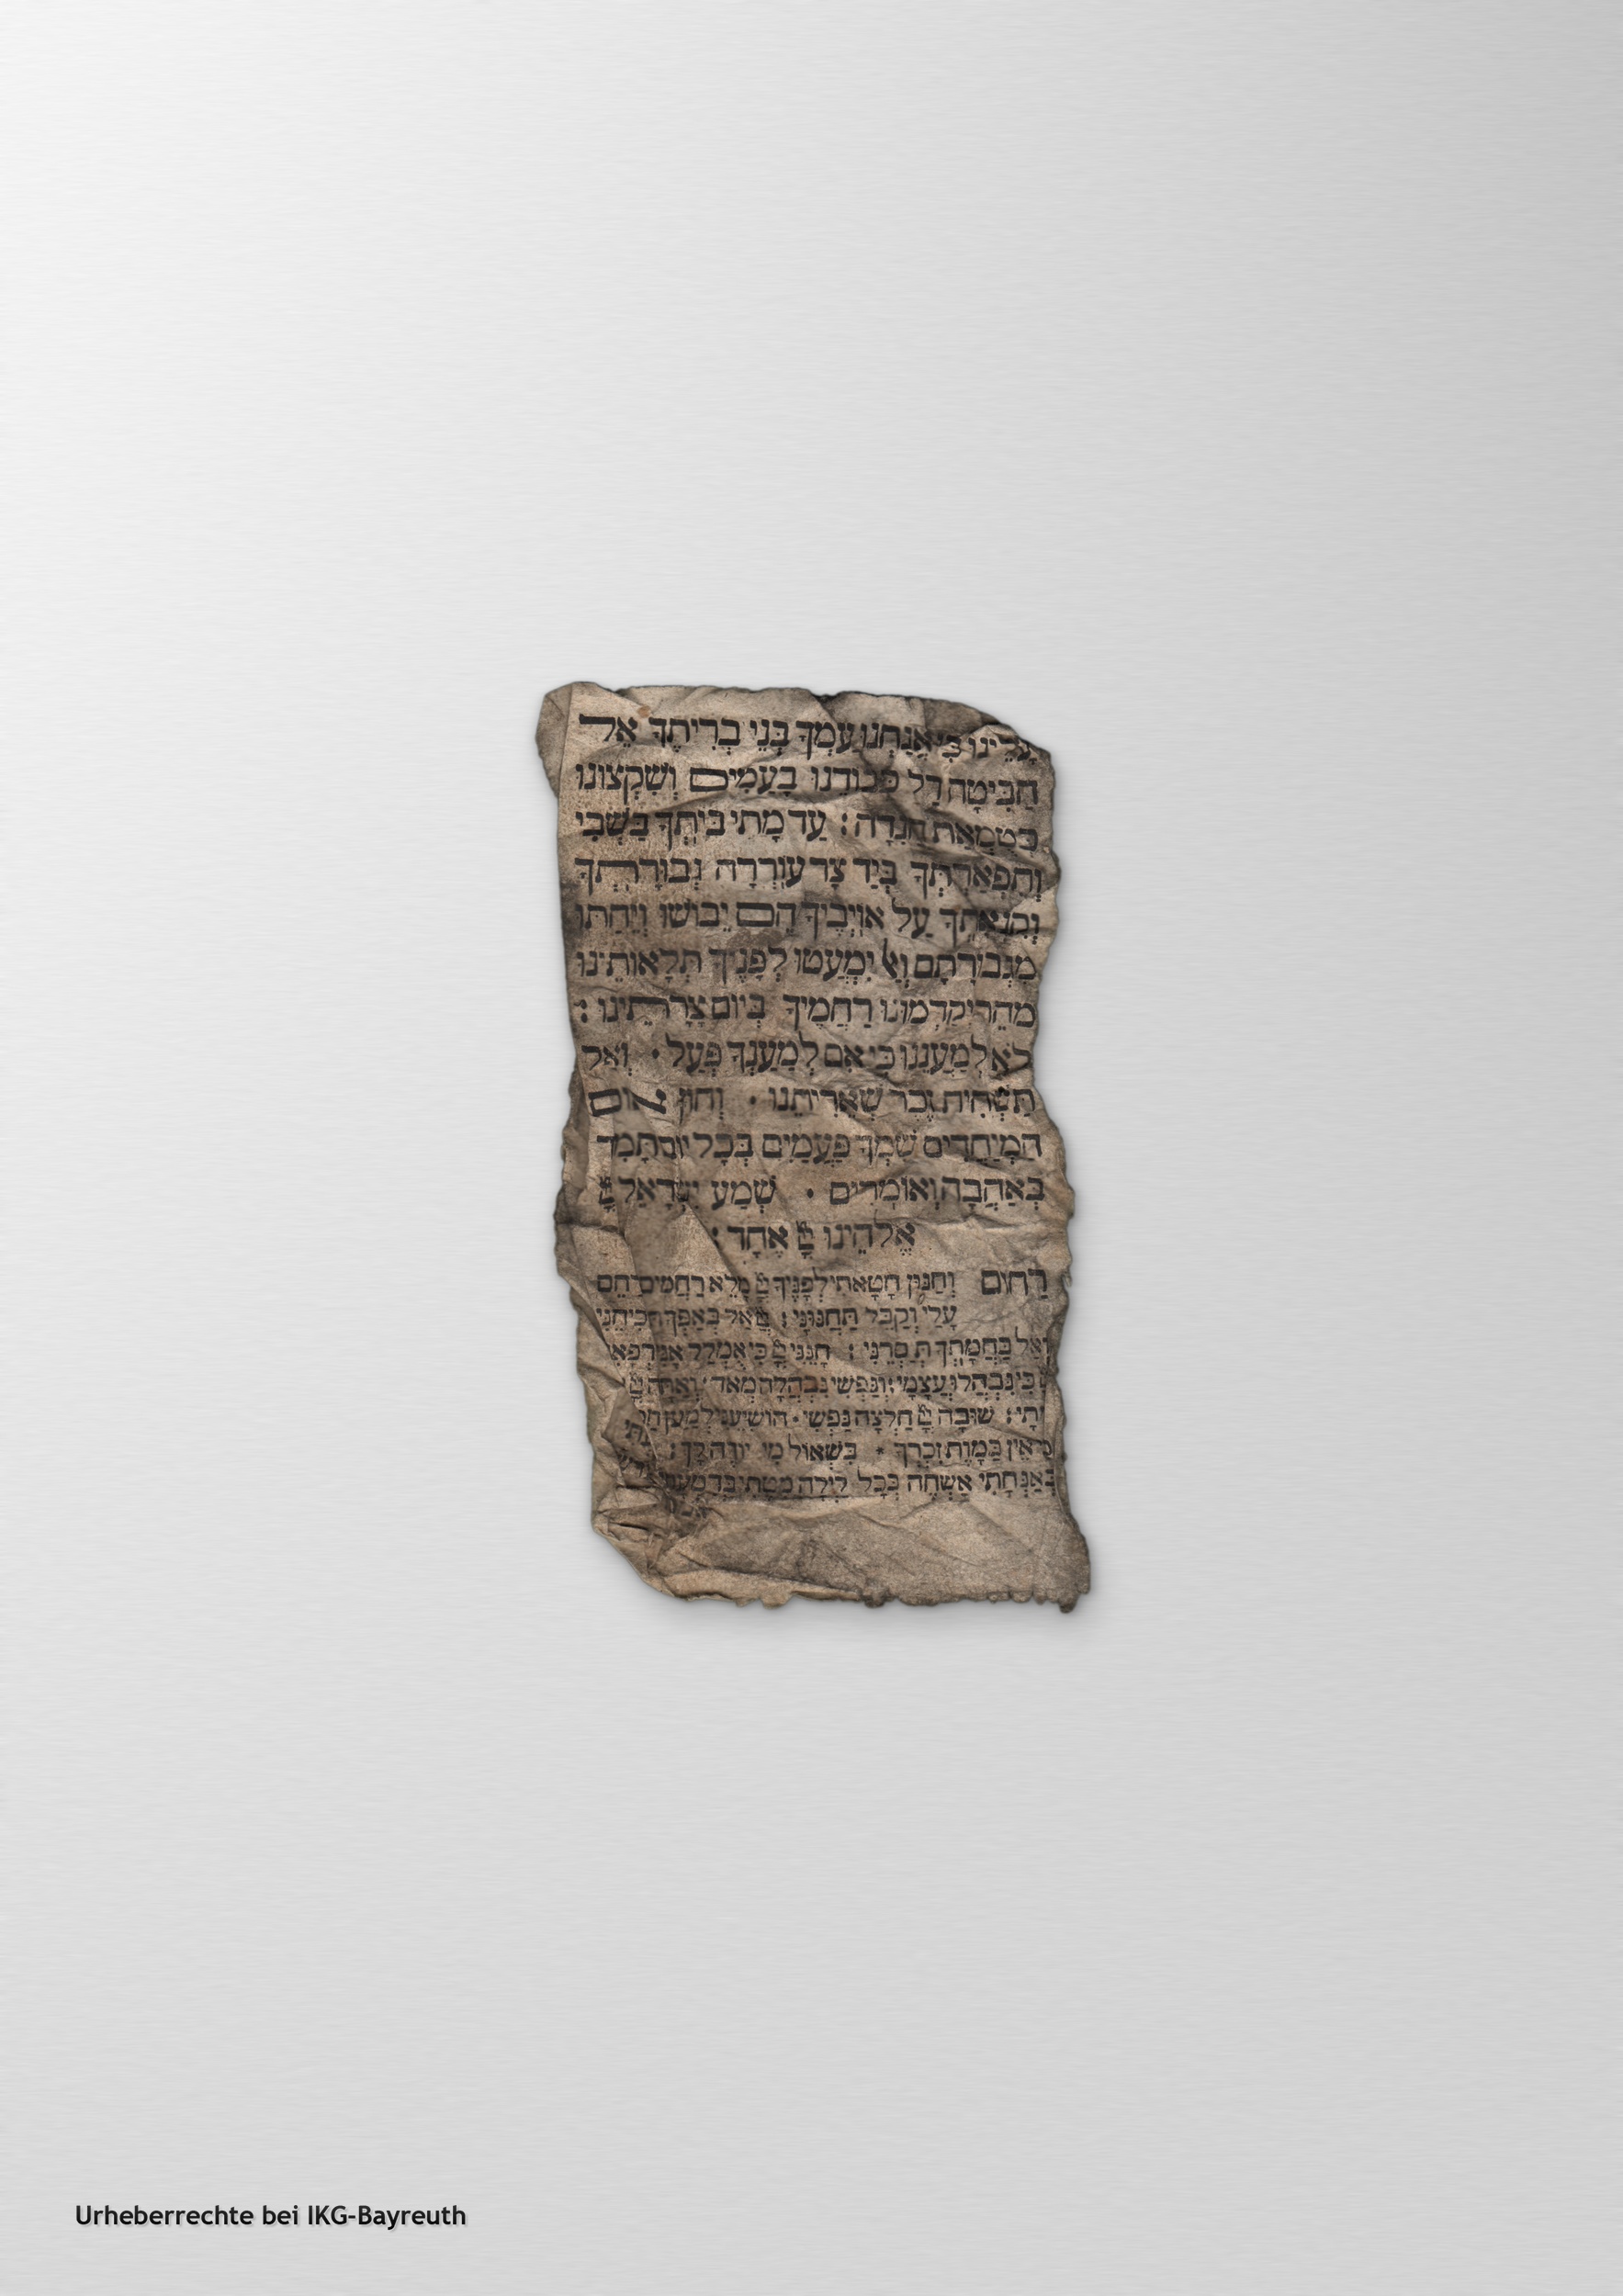 עָלֵינוּ כִּי אֲנַחְנוּ עַמְּךָ בְּנֵי בְרִיתֶךָ אֵל
הַבִּיטָה דַל כְּבוֹדֵנוּ בָעַמִּים וְשִׁקְּצוּנוּ
כְּטֻמְאַת הַנִּדָּה : עַד מָתַי בֵּיתְךָ בַּשְּׁבִי
וְתִפְאַרְתְּךָ בְּיַד צָר עוֹרְרָה גְבוּרָתְךָ
וְקִנְאָתְךָ עַל אוֹיְבֶיךָ הֵם יֵבוֹשׁוּ וְיֵחַתּוּ
מִגְּבוּרָתָם וְאַל יִמְעֲטוּ לְפָנֶיךָ תְּלָאוֹתֵינוּ
מַהֵר יְקַדְּמוּנוּ רַחֲמֶיךָ בְּיוֹם צָרָתֵינוּ :
לֹא לְמַעֲנֵנוּ כִּי אִם לְמַעַנְךָ פְּעַל · וְאַל
תַּשְׁחִית זֵכֶר שְׁאֵרִיתֵנוּ · וְחוֹן אוֹם
הַמְיַחֲדִים שִׁמְךָ פַּעֲמַיִם בְּכָל יוֹם תָּמִיד
בְּאַהֲבָה וְאוֹמְרִים · שְׁמַע יִשְׂרָאֵל יְיָ
אֱלֹהֵינוּ יְיָ אֶחָד :
רַחוּם וְחַנּוּן חָטָאתִי לְפָנֶיךָ יְיָ מָלֵא רַחֲמִים רַחֵם
עָלַי וְקַבֵּל תַּחֲנוּנָי : יְיָ אַל בְּאַפְּךָ תוֹכִיחֵנִי
וְאַל בַּחֲמָתְךָ תְיַסְּרֵנִי : חָנֵּנִי יְיָ כִּי אֻמְלַל אָנִי רְפָאֵ
כִּי נִבְהֲלוּ עֲצָמָי : וְנַפְשִׁי נִבְהֲלָה מְאֹד וְאַתָּה יְיָ
מָתַי : שׁוּבָה יְיָ חַלְּצָה נַפְשִׁי · הוֹשִׁיעֵנִי לְמַעַן חַ
אֵין בַּמָּוֶת זִכְרֶךָ * בִּשְׁאוֹל מִי יוֹדֶה לָּךְ :
בְּאַנְחָתִי אַשְׂחֶה בְכָל לַיְלָה מִטָּתִי בְּדִמְעָתִי
Urheberrechte bei IKG-Bayreuth